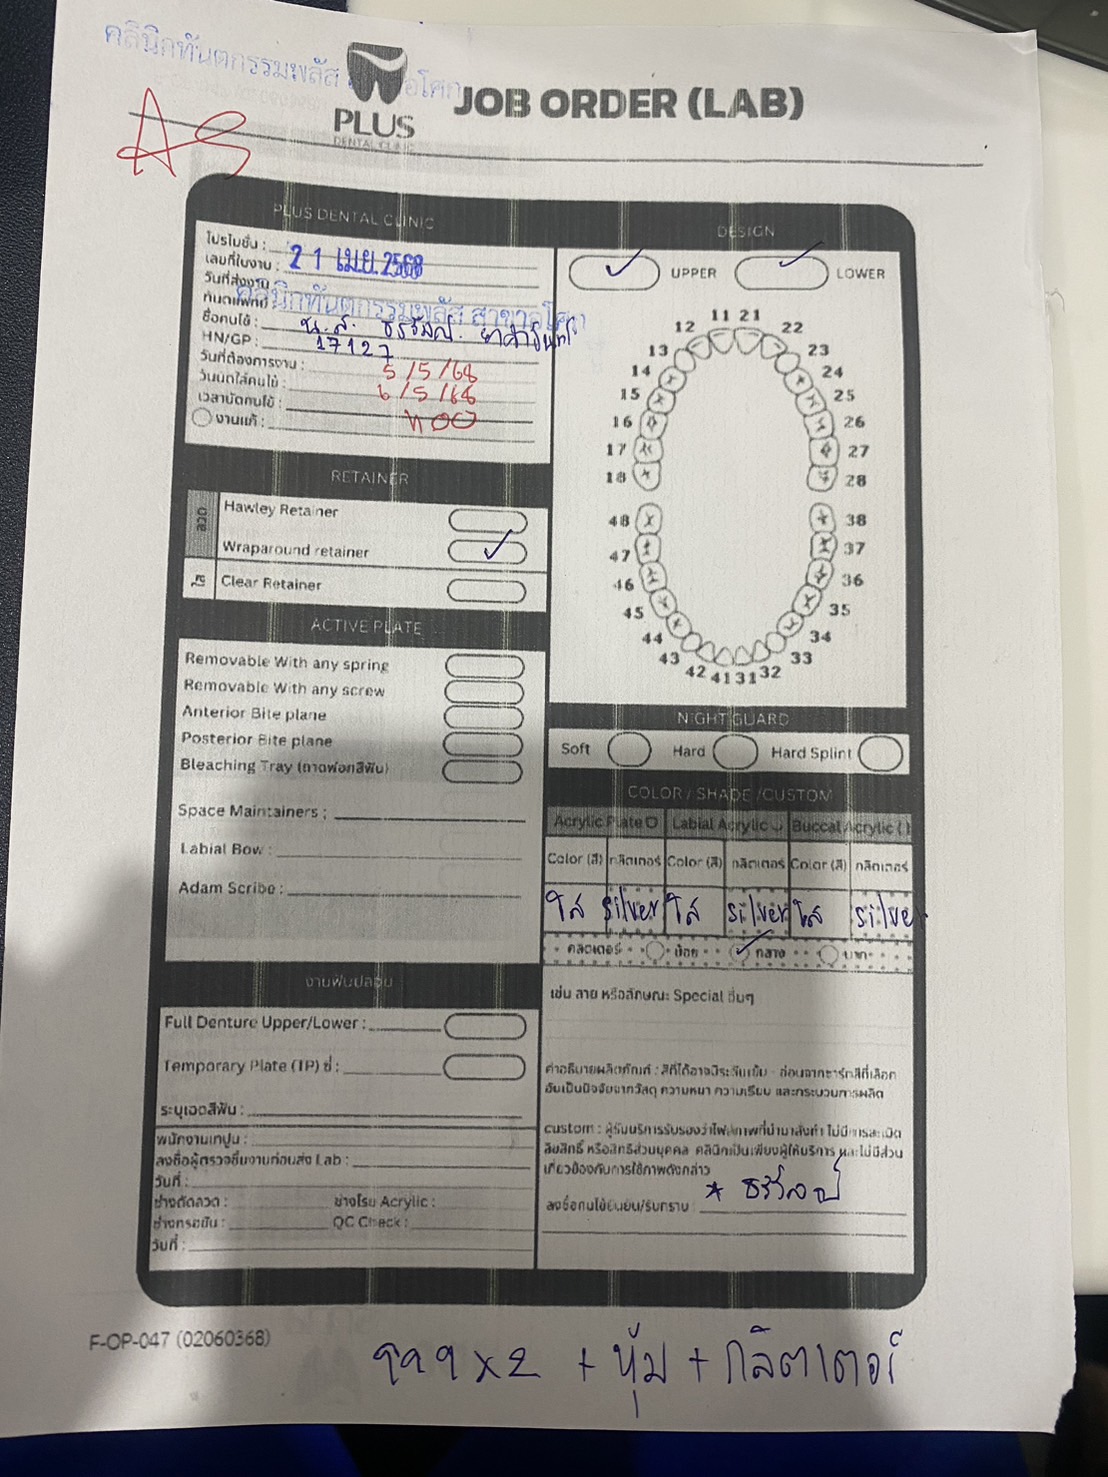 คลินิกทันตกรรมพลัส
PLUS
DENTAL CLINIC
JOB ORDER (LAB)
AS
PLUS DENTAL CLINIC
โปรโมชั่น :
เลขที่ใบงาน : 21 เม.ย. 2568
วันที่ส่งงาน
ทันตแพทย์ คลินิกทันตกรรมพลัส สาขาอโศก
ชื่อคนไข้ : น.ส.
HN/GP : 17127
วันที่ต้องการงาน : 5/5/68
วันนัดใส่คนไข้ : 6/5/68
เวลานัดคนไข้ :
งานแก้ :
RETAINER
ลวด
Hawley Retainer
Wraparound retainer ✓
ใส
Clear Retainer
ACTIVE PLATE
Removable With any spring
Removable With any screw
Anterior Bite plane
Posterior Bite plane
Bleaching Tray (ถาดฟอกสีฟัน)
Space Maintainers :
Labial Bow :
Adam Scribe :
งานฟันปลอม
Full Denture Upper/Lower :
Temporary Plate (TP) ซี่ :
ระบุเฉดสีฟัน :
พนักงานเทปูน :
ลงชื่อผู้ตรวจชิ้นงานก่อนส่ง Lab :
วันที่ :
ช่างดัดลวด : ช่างโรย Acrylic :
ช่างกรอขัด : QC Check :
วันที่ :
DESIGN
✓ UPPER ✓ LOWER
11 21
12 22
13 23
14 24
15 25
16 26
17 27
18 28
48 38
47 37
46 36
45 35
44 34
43 33
42 41 31 32
NIGHT GUARD
Soft Hard Hard Splint
COLOR / SHADE /CUSTOM
Acrylic Plate Labial Acrylic Buccal Acrylic
Color (สี) กลิตเตอร์ Color (สี) กลิตเตอร์ Color (สี) กลิตเตอร์
ใส silver ใส silver ใส silver
กลิตเตอร์ น้อย ✓ กลาง มาก
เช่น ลาย หรือลักษณะ Special อื่นๆ
คำอธิบายผลิตภัณฑ์ : สีที่ได้อาจมีระดับเข้ม - อ่อนจากชาร์ทสีที่เลือก
อันเป็นปัจจัยจากวัสดุ ความหนา ความเรียบ และกระบวนการผลิต
custom : ผู้รับบริการรับรองว่าไฟล์ภาพที่นำมาสั่งทำ ไม่มีการละเมิด
ลิขสิทธิ์ หรือสิทธิส่วนบุคคล คลินิกเป็นเพียงผู้ให้บริการ และไม่มีส่วน
เกี่ยวข้องกับการใช้ภาพดังกล่าว
ลงชื่อคนไข้ยืนยัน/รับทราบ :
F-OP-047 (02060368)
x2 + หุ้ม + กลิตเตอร์